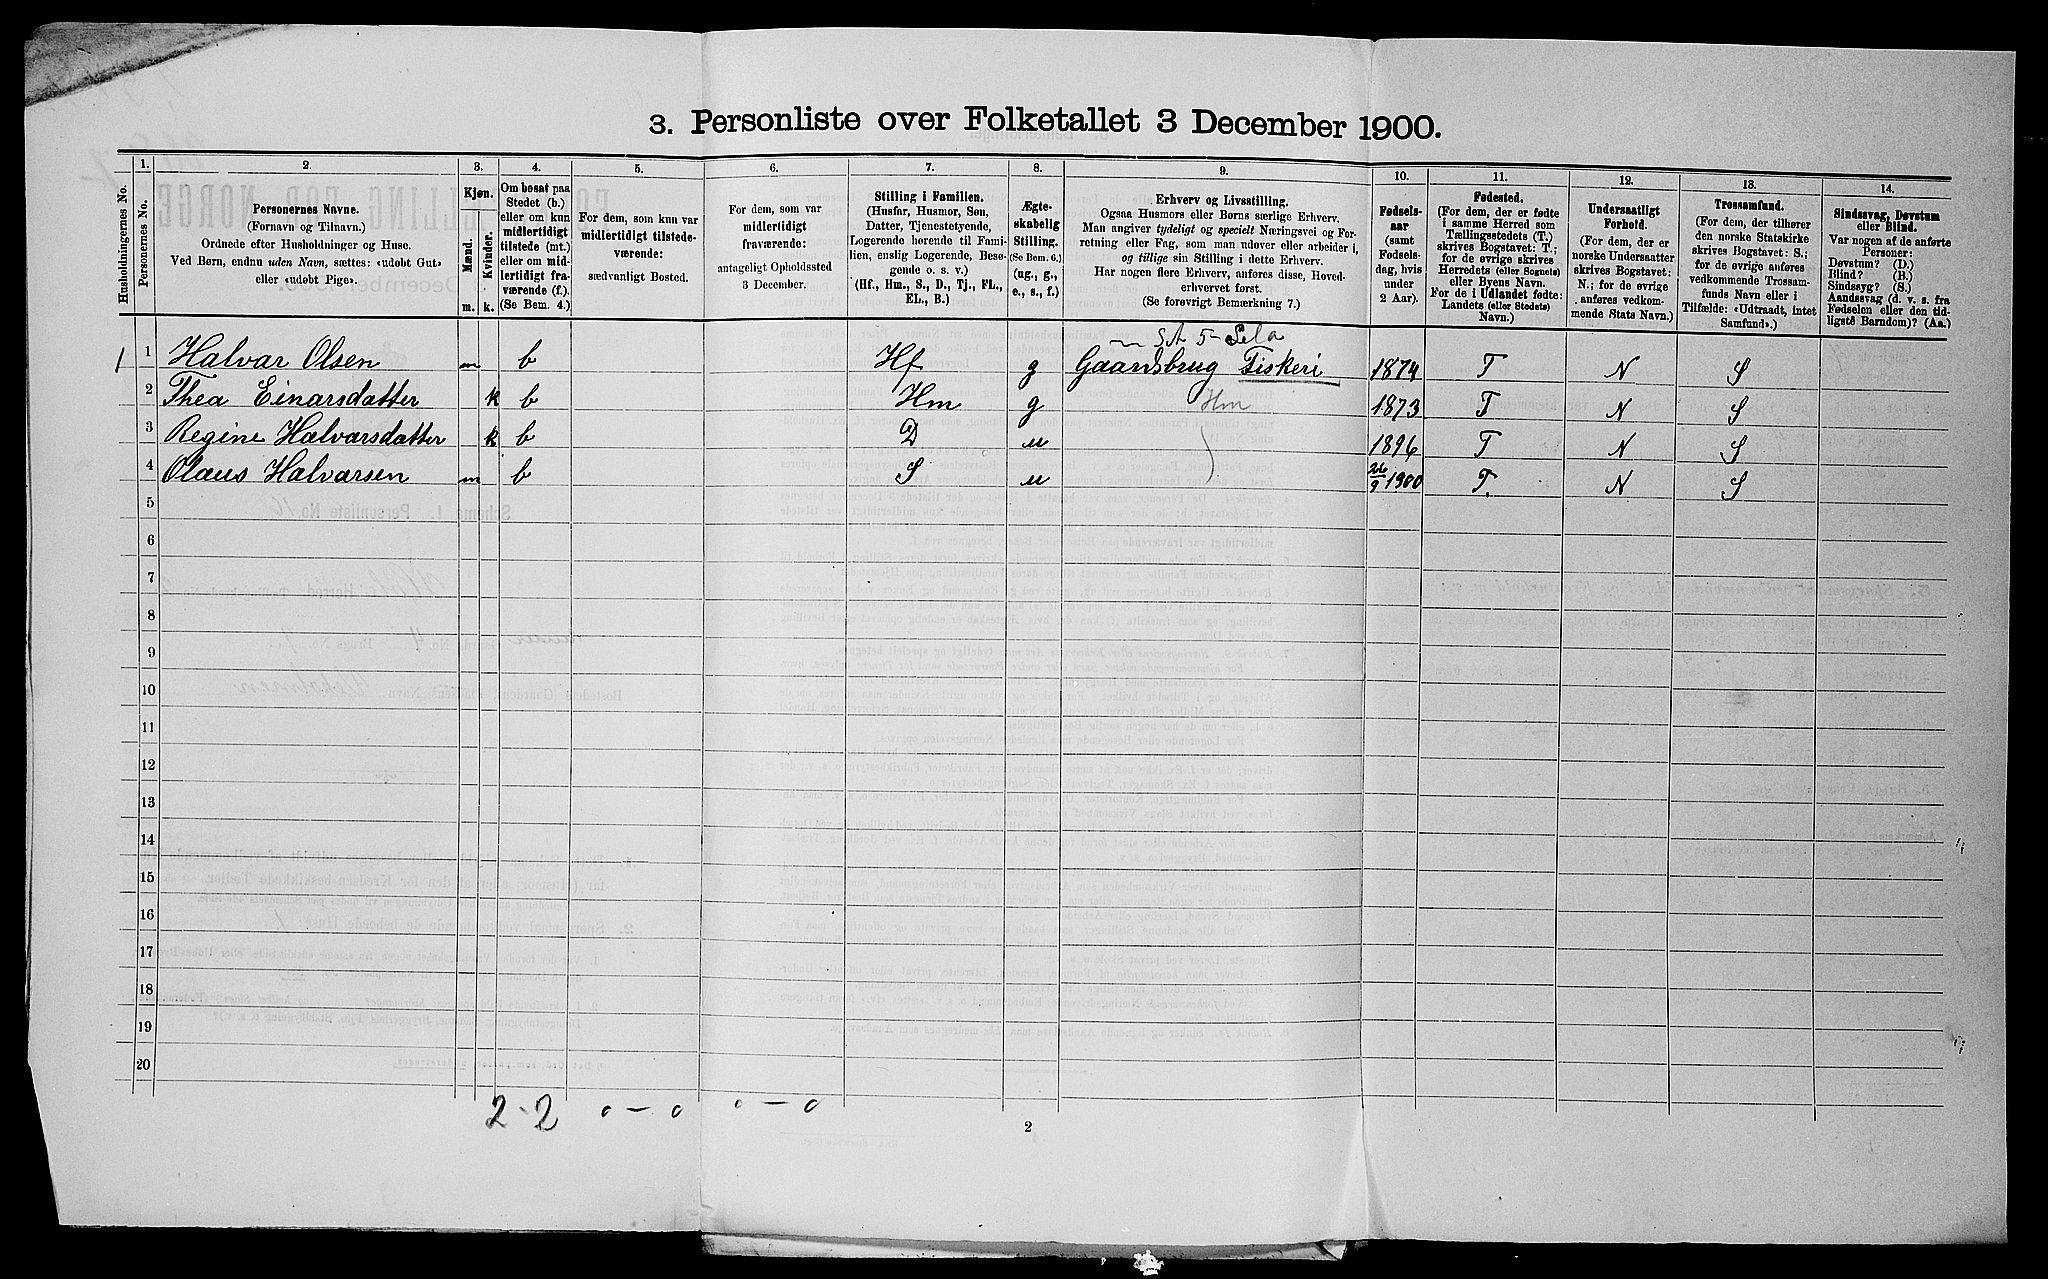 3. Personliste over Folketallet 3 December 1900.
Husholdningernes No.
1.
Personernes No.
2.
Personernes Navne.
(Fornavn og Tilnavn.)
Ordnede efter Husholdninger og Huse.
Ved Børn, endnu uden Navn, sættes: «udøbt Gut»
eller «udøbt Pige».
3.
Kjøn.
Mænd.
Kvinder.
m.
k.
4.
Om bosat paa
Stedet (b.)
eller om kun
midlertidigt
tilstede (mt.)
eller om mid-
lertidigt fra-
værende (f.).
(Se Bem. 4.)
5.
For dem, som kun var
midlertidigt tilstede-
værende:
sædvanligt Bosted.
6.
For dem, som var
midlertidigt
fraværende:
antageligt Opholdssted
3 December.
7.
Stilling i Familien.
(Husfar, Husmor, Søn,
Datter, Tjenestetyende,
Logerende hørende til Fami-
lien, enslig Logerende, Besø-
gende o. s. v.)
(Hf., Hm., S., D., Tj., FL.,
EL., B.)
8.
Ægte-
skabelig
Stilling.
(Se Bem. 6.)
(ug., g.,
e., s., f.)
9.
Erhverv og Livsstilling.
Ogsaa Husmors eller Børns særlige Erhverv.
Man angiver tydeligt og specielt Næringsvei og For-
retning eller Fag, som man udøver eller arbeider i,
og tillige sin Stilling i dette Erhverv.
Har nogen flere Erhverv, anføres disse, Hoved-
erhvervet først.
(Se forøvrigt Bemærkning 7.)
10.
Fødsels-
aar
(samt
Fødsels-
dag, hvis
under
2 Aar).
11.
Fødested.
(For dem, der er fødte
i samme Herred som
Tællingsstedets (T.)
skrives Bogstavet: T.;
for de øvrige skrives
Herredets (eller Sognets)
eller Byens Navn.
For de i Udlandet fødte:
Landets (eller Stedets)
Navn.)
12.
Undersaatligt
Forhold.
(For dem, der er
norske Undersaatter
skrives Bogstavet:
N.; for de øvrige
anføres vedkom-
mende Stats Navn.)
13.
Trossamfund.
(For dem, der tilhører
den norske Statskirke
skrives Bogstavet: S.;
for de øvrige anføres
vedkommende Trossam-
funds Navn eller i
Tilfælde: «Udtraadt, intet
Samfund».)
14.
Sindssvag, Døvstum
eller Blind.
Var nogen af de anførte
Personer:
Døvstum? (D.)
Blind? (B.)
Sindssyg? (S.)
Aandssvag (d. v. s. fra
Fødselen eller den tid-
ligste Barndom)? (Aa.)
1 1 Halvar Olsen m b Hf g Gaardsbrug Fiskeri 1874 T N S
2 Thea Einarsdatter k b Hm g Hm 1873 T N S
3 Regine Halvarsdatter k b D u 1896 T N S
4 Olaus Halvarsen m b S u 26/9 1900 T. N S
5
6
7
8
9
10
11
12
13
14
15
16
17
18
19
20
2 - 2 0 - 0 0 - 0
2